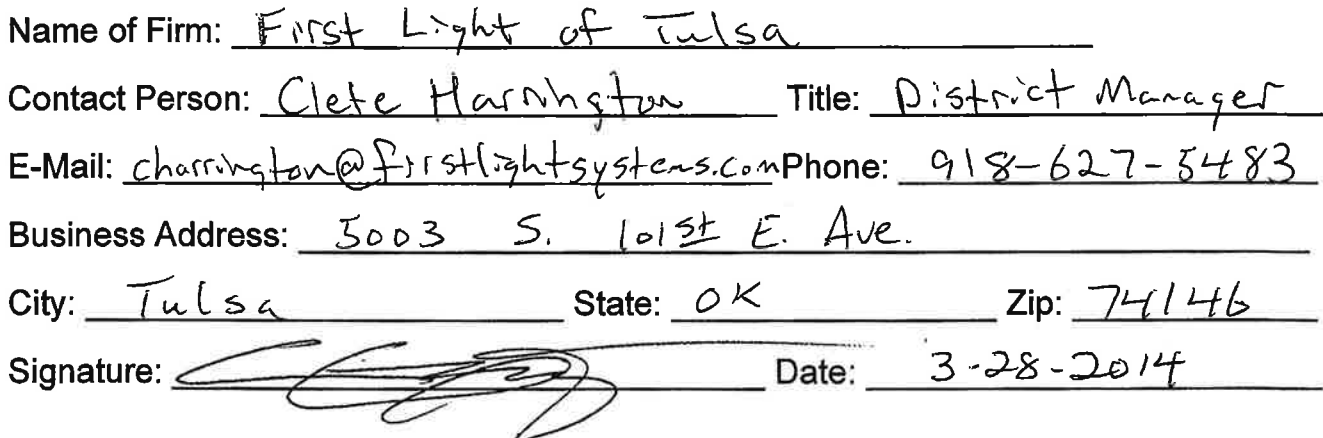 Name of Firm: First Light of Tulsa
Contact Person: Clete Harrington Title: District Manager
E-Mail: charrington@firstlightsystems.com Phone: 918-627-5483
Business Address: 5003 S. 101st E. Ave.
City: Tulsa State: OK Zip: 74146
Signature: Date: 3-28-2014